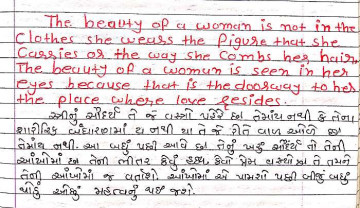 The beauty of a woman is not in the
Clothes she wears the figure that she
Carries or the way she Combs her hair.
The beauty of a woman is seen in her
eyes because that is the doorway to her
the place where love Resides.
સ્ત્રીનું સૌંદર્ય તે જે વસ્ત્રો પહેરે છે તેમાંય નથી કે તેના
શારીરિક બંધારણમાં ય નથી યા તે જે રીતે વાળ ઓળે છે
તેમાંય નથી. આ બધું પછી આવે છે તેનું ખરું સૌંદર્ય તો તેની
આંખોમાં છે તેના ભીતર કેવું હૃદય કેવો પ્રેમ છે તે તમને
તેની આંખોમાં જ વર્તાશે. આંખોમાં એ પામશો પછી બીજું બધું
થોડું ઓછું મહત્વનું થઈ જશે.